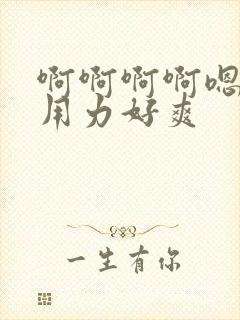 啊啊啊啊嗯
用力好爽
一生有你